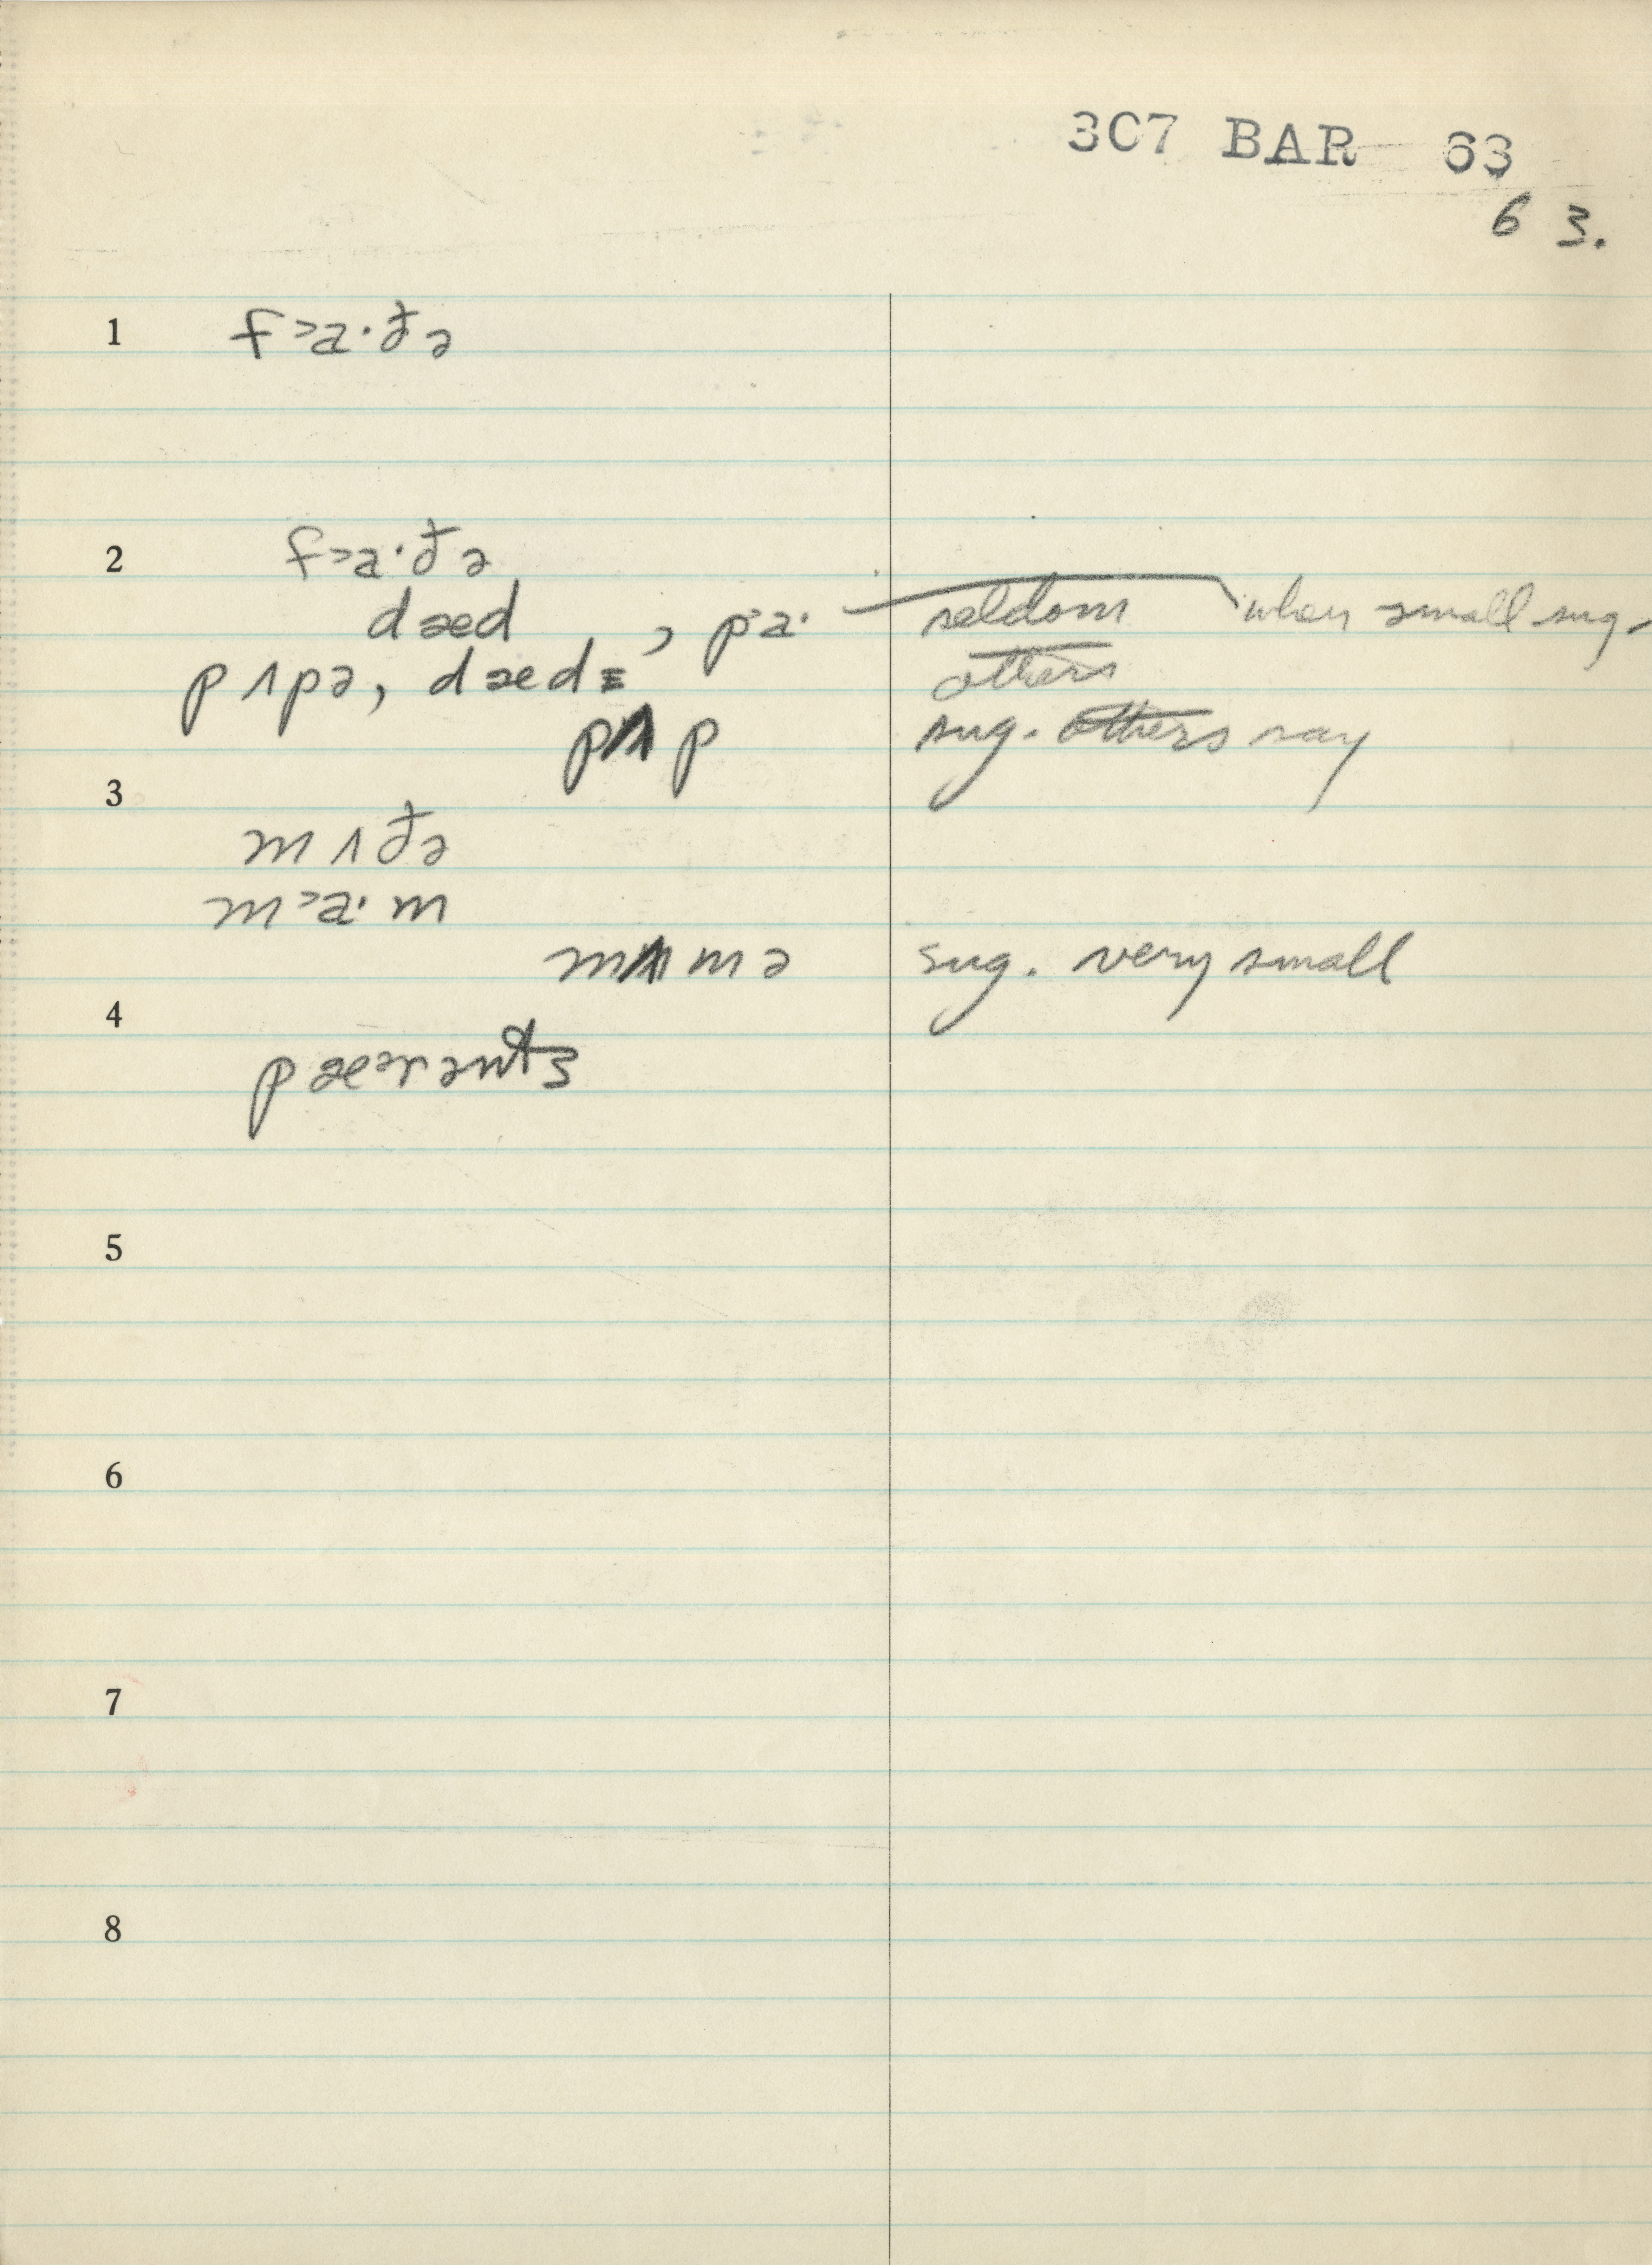 3C7 BAR 63
6 3.
1 f˃a·ðə
2 f˃a·ðə
dæd , p˃a· seldom when small sug.
pʌpə, dædɪ others
pʌp sug. others say
3
mʌðə
m˃a·m
mʌmə sug. very small
4
pæərənts
5
6
7
8